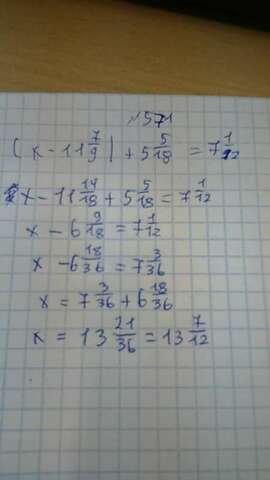 №571
(x - 11 7/9) + 5 5/18 = 7 1/12
x - 11 14/18 + 5 5/18 = 7 1/12
x - 6 9/18 = 7 1/12
x - 6 18/36 = 7 3/36
x = 7 3/36 + 6 18/36
x = 13 21/36 = 13 7/12